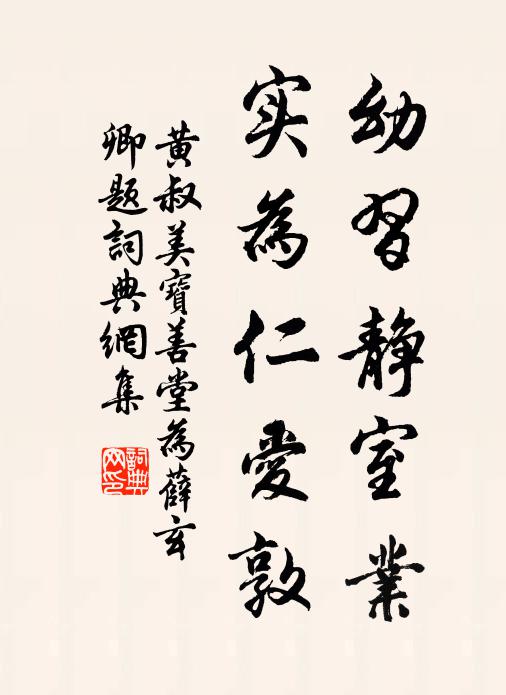 幼習靜室業
实為仁愛敦
黃叔美寶善堂為薛玄
卿題詞典網集
詞典
网印